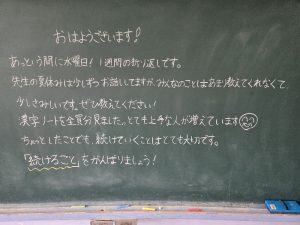 おはようございます!
あっという間に水曜日! 1週間の折り返しです。
先生の夏休みは少しずつお話してますが、みんなのことはあまり教えてくれなくて、
少しさみしいです。ぜひ教えてください!
漢字ノートを全員分見ました。とても上手な人が増えています
ちょっとしたことでも、続けていくことはとても大切です。
「続けること」をがんばりましょう!